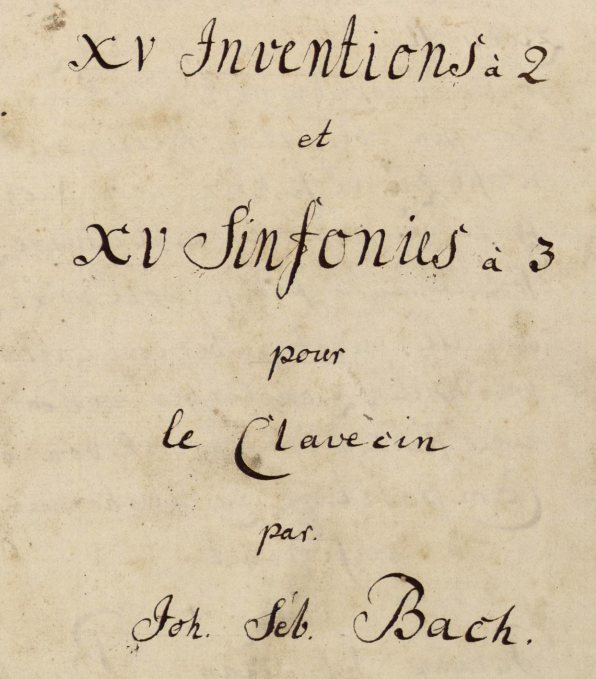 XV Inventions à 2
et
XV Sinfonies à 3
pour
le Clavecin
par.
Joh. Seb. Bach.